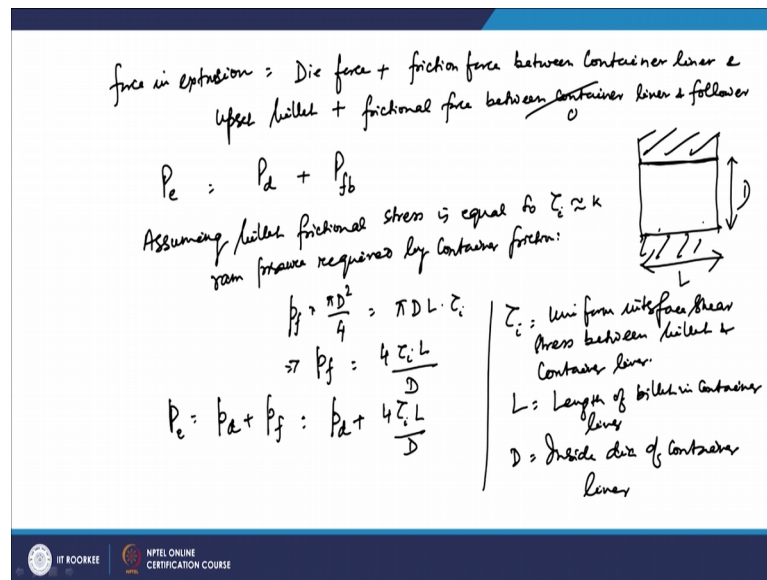 force in extrusion = Die force + friction force between Container liner &
upset billet + frictional force between container liner & follower
0
P_e = P_d + P_fb
Assuming billet frictional stress is equal to τ_i ≈ k
ram pressure required by Container friction:
p_f × πD²/4 = πDL·τ_i
⇒ p_f = 4τ_i L/D
P_e = p_d + p_f = p_d + 4τ_i L/D
D
L
τ_i = Uniform interface shear
stress between billet &
Container liner.
L = Length of billet in Container
liner
D = Inside dia of Container
liner
IIT ROORKEE
NPTEL ONLINE
CERTIFICATION COURSE